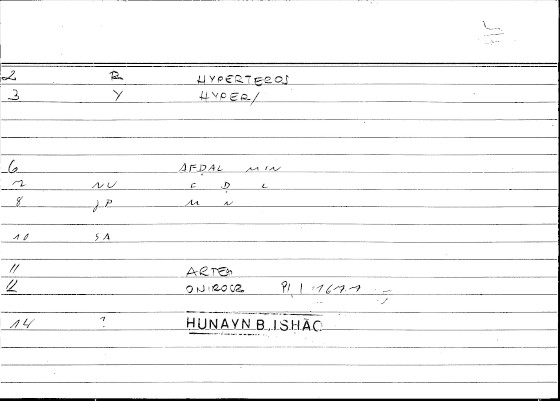 2 R HYPERTEROS
3 Y HYPER/
6 AFḌAL MIN
7 NV C D L
8 JP M N
10 SA
11 ARTEM
12 ONIROCR PI 1 167.1
14 ? ḤUNAYN B. ISḤĀQ